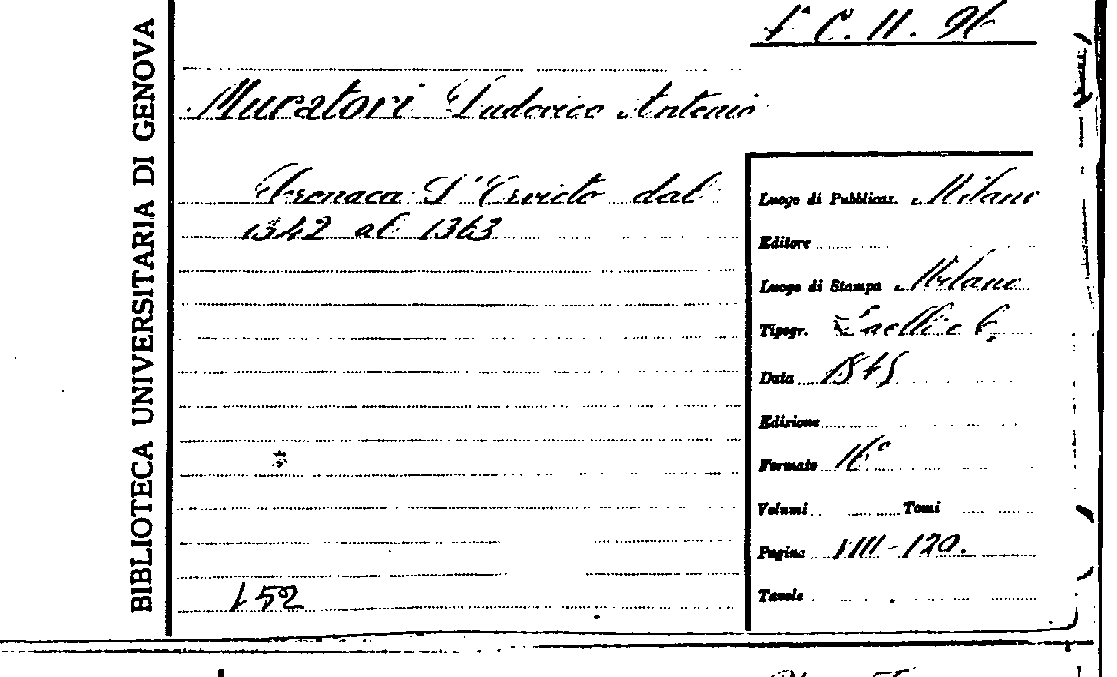 1ª C. II. 96
BIBLIOTECA UNIVERSITARIA DI GENOVA
Muratori Ludovico Antonio
Cronaca D'Orvieto dal
1342 al 1363
152
Luogo di Pubblicaz. Milano
Editore
Luogo di Stampa Milano
Tipogr. Daelli e C.
Data 1845
Edizione
Formato 16º
Volumi Tomi
Pagine VIII-120.
Tavole